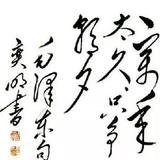 一萬年
太久只争
朝夕
毛澤東句
奕明書